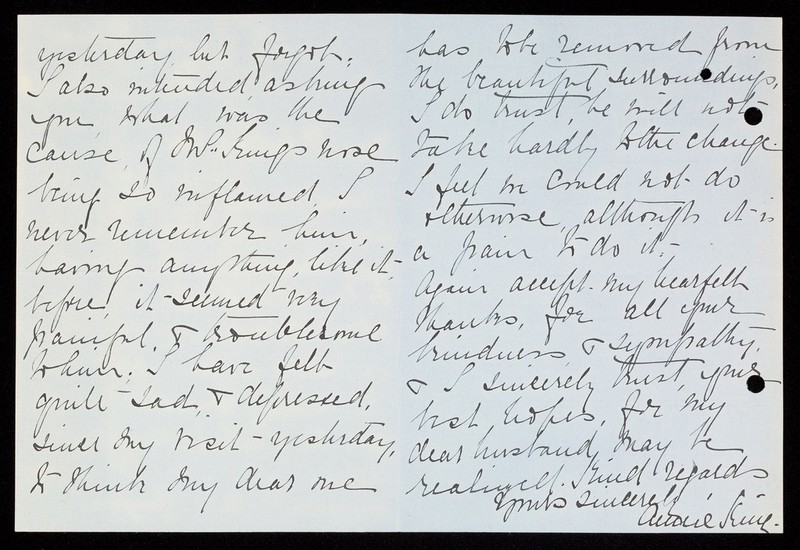 yesterday, but forgot.
I also intended asking
you, what was the
cause, of Mr. King's nose
being so inflamed, I
never remember him,
having anything, like it,
before, it seemed very
painful, & troublesome
to him. I have felt
quite sad, & depressed,
since my visit - yesterday,
to think my dear one
has to be removed from
the beautiful surroundings,
I do trust, he will not
take hardly to the change.
I feel we could not do
otherwise, although it is
a pain to do it. -
Again accept my hearfelt
thanks, for all your
kindness & sympathy,
& I sincerely trust, your
best hopes, for my
dear husband, may be
realized. Kind regards
Yours sincerely,
Annie King.